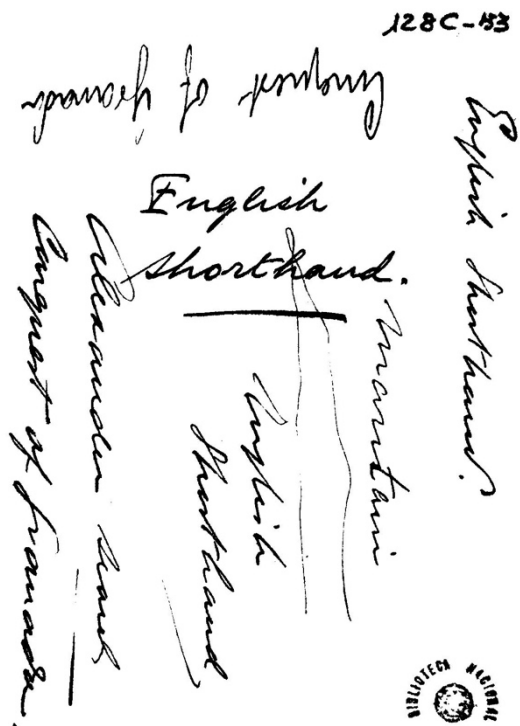 128C-
Conquest of Granada
English Shorthand.
English
Shorthand.
English
Shorthand
Alexander
Conquest of Granada.
BIBLIOTECA NACIONAL